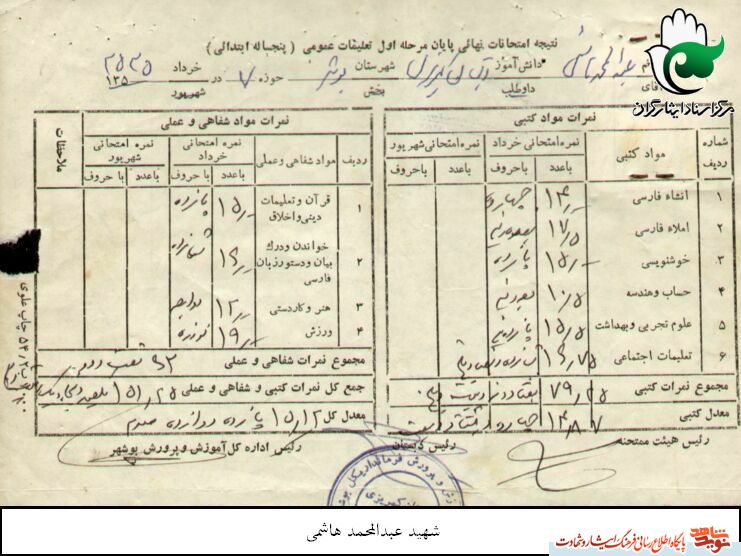 مرکز اسناد ایثارگران
نتیجه امتحانات نهائی پایان مرحله اول تعلیمات عمومی ( پنجساله ابتدائی )
عبدالمحمد هاشمی دانش‌آموز شهرستان بوشهر حوزه ۷ در خرداد
آقای داوطلب بخش شهریور
نمرات مواد کتبی
شماره ردیف مواد کتبی نمره امتحانی خرداد نمره امتحانی شهریور
باعدد باحروف باعدد باحروف
۱ انشاء فارسی ۱۴ چهارده
۲ املاء فارسی ۱۷/۵
۳ خوشنویسی ۱۵ پانزده
۴ حساب و هندسه ۱۰/۵
۵ علوم تجربی و بهداشت ۱۵/۵
۶ تعلیمات اجتماعی ۱۶/۷۵
مجموع نمرات کتبی ۷۹/۲۵
معدل کتبی
نمرات مواد شفاهی و عملی
ردیف مواد شفاهی و عملی نمره امتحانی خرداد نمره امتحانی شهریور ملاحظات
باعدد باحروف باعدد باحروف
۱ قرآن و تعلیمات دینی و اخلاق ۱۵ پانزده
۲ خواندن و درک بیان و دستور زبان فارسی ۱۶ شانزده
۳ هنر و کاردستی ۱۲
۴ ورزش ۱۹ نوزده
مجموع نمرات شفاهی و عملی ۶۲ شصت و دو
جمع کل نمرات کتبی و شفاهی و عملی
معدل کل ۱۵/۱۲ پانزده دوازده صدم
رئیس هیئت ممتحنه
رئیس دبستان
رئیس اداره کل آموزش و پرورش بوشهر
چاپ علوی
شهید عبدالمحمد هاشمی
نوید شاهد
پایگاه اطلاع رسانی فرهنگ ایثار و شهادت